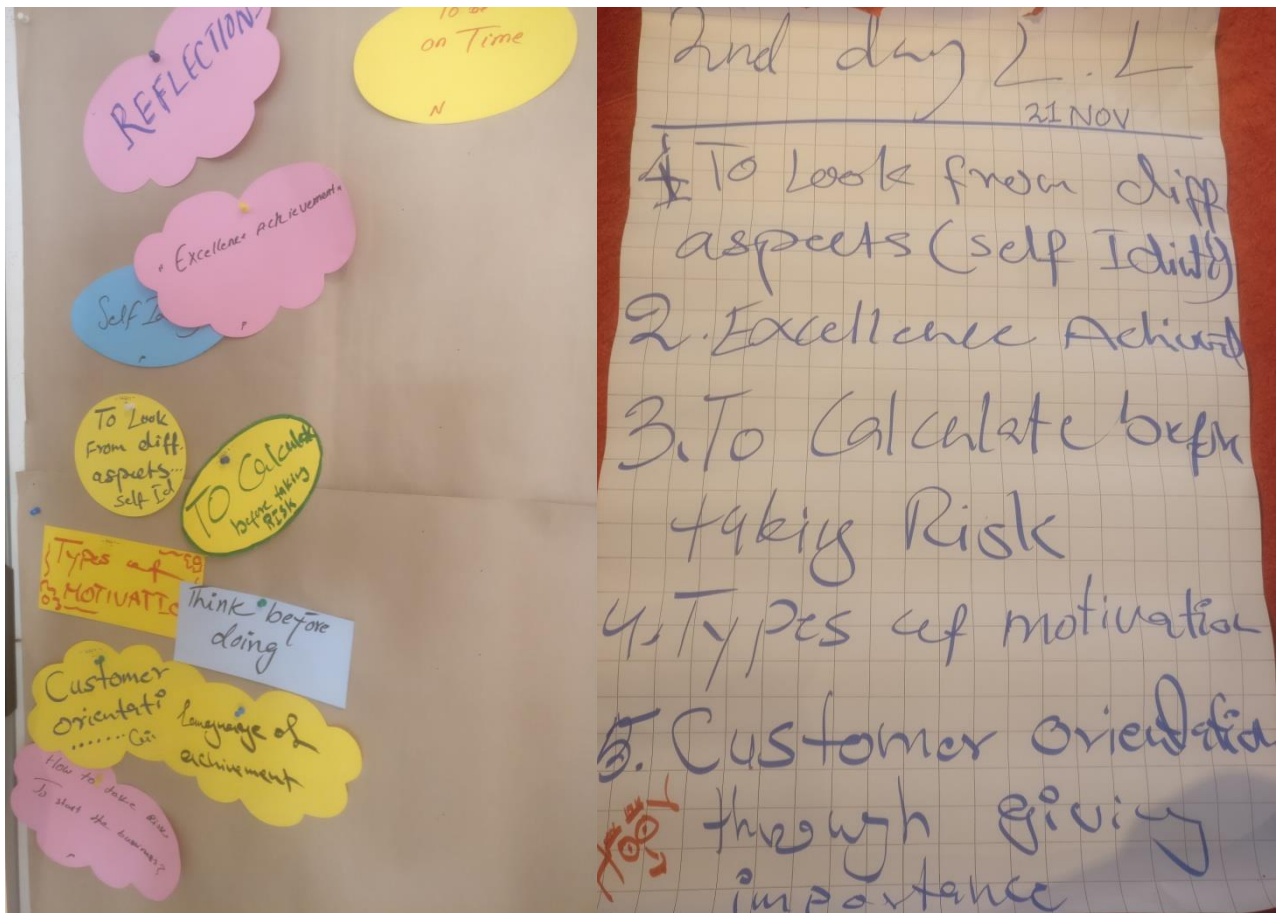 REFLECTION
on Time
N
Excellence Achievement.
Self Id
To Look
From diff.
aspects...
self Id
TO Calculate
before taking
RISK
Types of
MOTIVATIO
Think before
doing
Customer
orientati
....... Gi
language of
achivement
How to take Risk
To start the business?
2nd day L.L
21 NOV
1 To Look from diff
aspects (self Idinty)
2. Excellence Achievmt
3. To Calculate before
taking Risk
4. Types of motivation
5. Customer orientation
through giving
importance